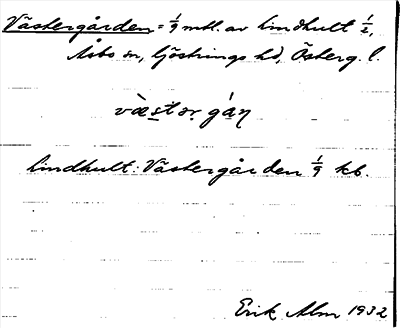 Västergården = 1/9 mtl. av Lindhult 1/2,
Åsbo sn, Göstrings hd, Österg. l.
väs̀tər gáɳ
Lindhult: Västergården 1/9 kb.
Erik Alm 1932